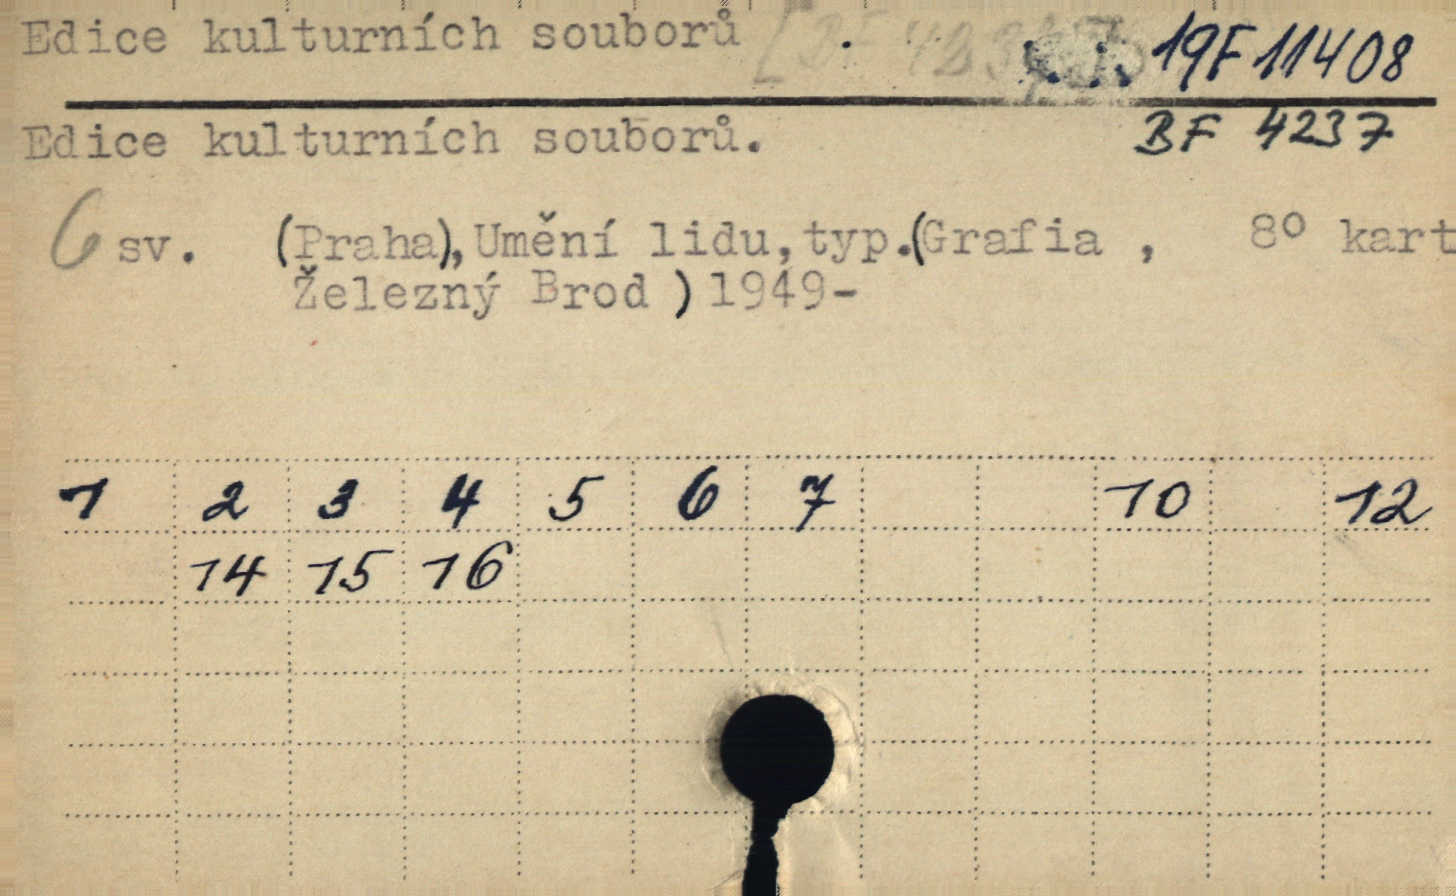 Edice kulturních souborů 19F 11408
Edice kulturních souborů. BF 4237
6 sv. (Praha), Umění lidu, typ.(Grafia , 8° kart
Železný Brod ) 1949-
1 2 3 4 5 6 7 10 12
14 15 16